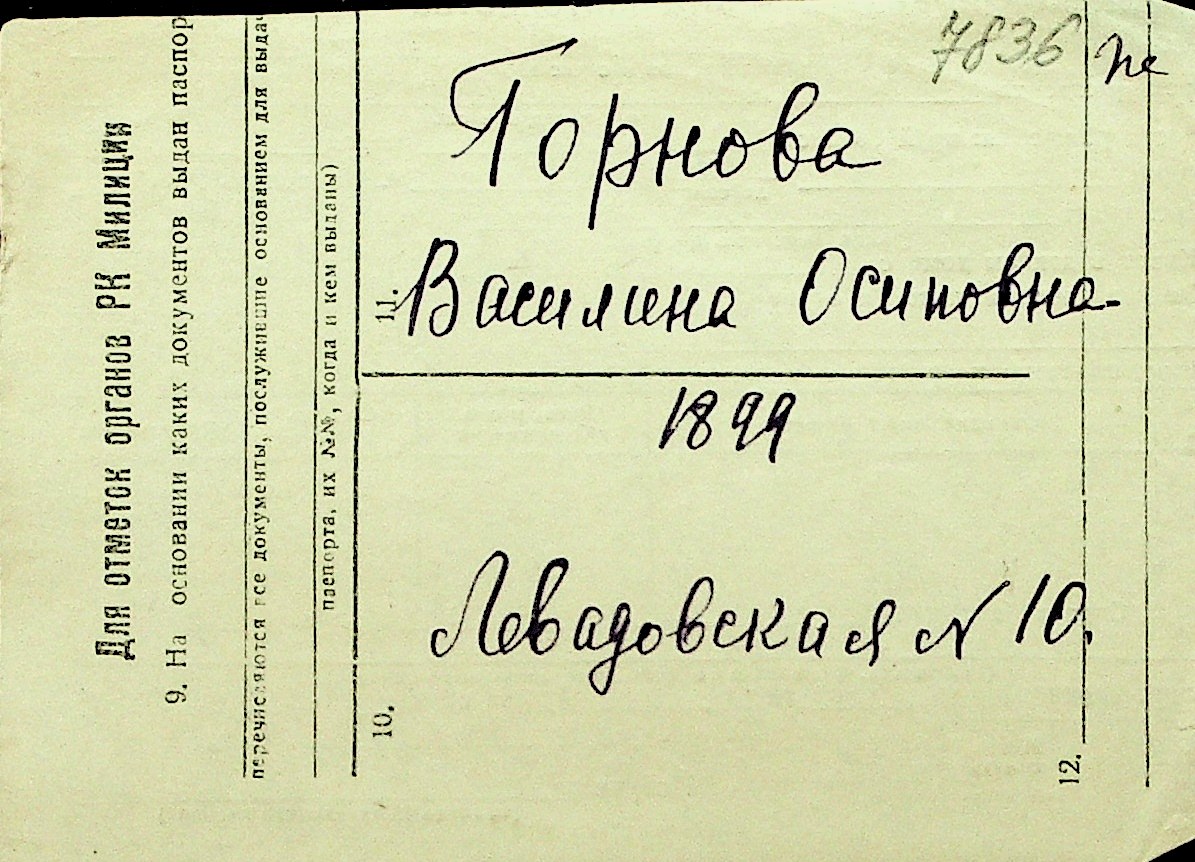 7836
Горнова
Василина Осиповна
1899
Левадовская N 10.
Для отметок органов РК Милиции
9. На основании каких документов выдан паспор
перечисляются все документы, послужившие основанием для выдач
паспорта, их №№, когда и кем выданы)
10.
11.
12.